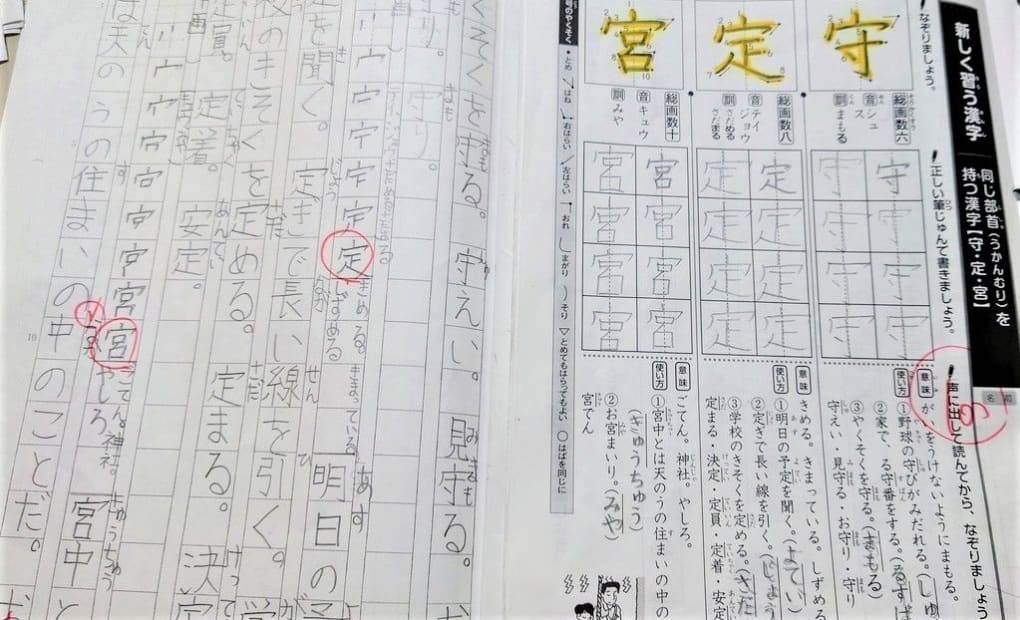 新しく習う漢字
同じ部首(うかんむり)を
持つ漢字【守・定・宮】
なぞりましょう。
正しい筆じゅんで書きましょう。
声に出して読んでから、なぞりましょう
守
総画数六
音 シュ
ス
訓 まもる
守
意味
がいをうけないようにまもる。
使い方
①野球の守びがみだれる。(しゅ
②家で、る守番をする。(るす
③やくそくを守る。(まもる
守えい・見守る・お守り・守り
定
総画数八
音 テイ
ジョウ
訓 さだめる
さだまる
定
定
意味
きめる。きまっている。しずめる
使い方
①明日の予定を聞く。(よてい)
②定ぎで長い線を引く。(じょう
③学校のきそくを定める。(さだ
定まる・決定・定員・定着・安定
宮
総画数十
音 キュウ
訓 みや
宮
宮
意味
ごてん。神社。やしろ。
使い方
①宮中とは天のうの住まいの中の
(きゅうちゅう)
②お宮まいり。(みや)
宮でん
号のやくそく
・とめ
はね
右はらい
左はらい
おれ
まがり
そり
▽とめてもはらってもよい
○はばを同じに
くそくを守る。守えい。見守る。
守り。
定 定
きめる。きまっている。
しずめる
明日の
を聞く。定ぎで長い線を引く。
のきそくを定める。定まる。決
定員。定着。安定。
宮 宮
ごてん。神社。
やしろ。
宮中と
は天のうの住まいの中のことだ。